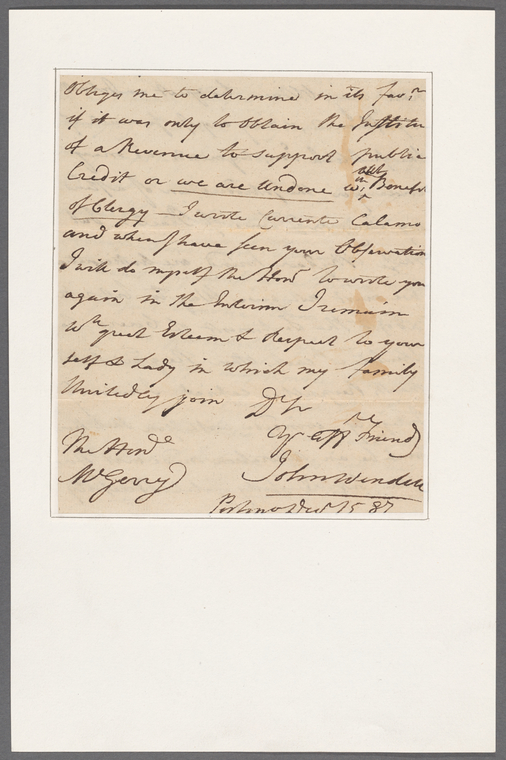 Obliges me to determine in its favr
if it was only to Obtain the
of a Revenue to support public
Credit or we are Undone wth out Benefit
of Clergy — I wrote Currente Calamo
and when I have seen your Observation
I will do myself the Honr to wrote you
again in the Interim I remain
Wth great Esteem & Respect to your
self & Lady in which my family
Unitedly join Dr Sr
Yr Aff te Friend
The Honle
Mr Gerry
John Wendell
Portsmo Decr 15 87